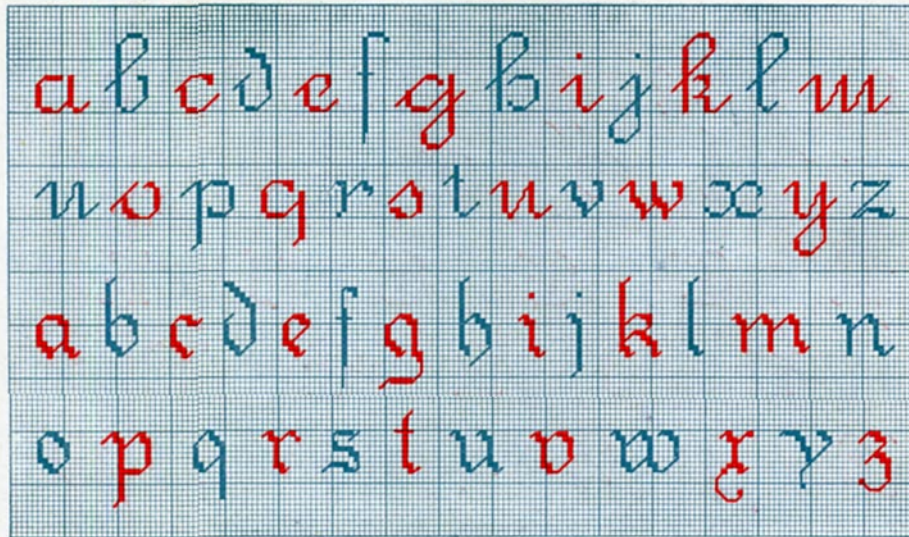 a b c d e f g h i j k l m
n o p q r s t u v w x y z
a b c d e f g h i j k l m n
o p q r s t u v w x y z